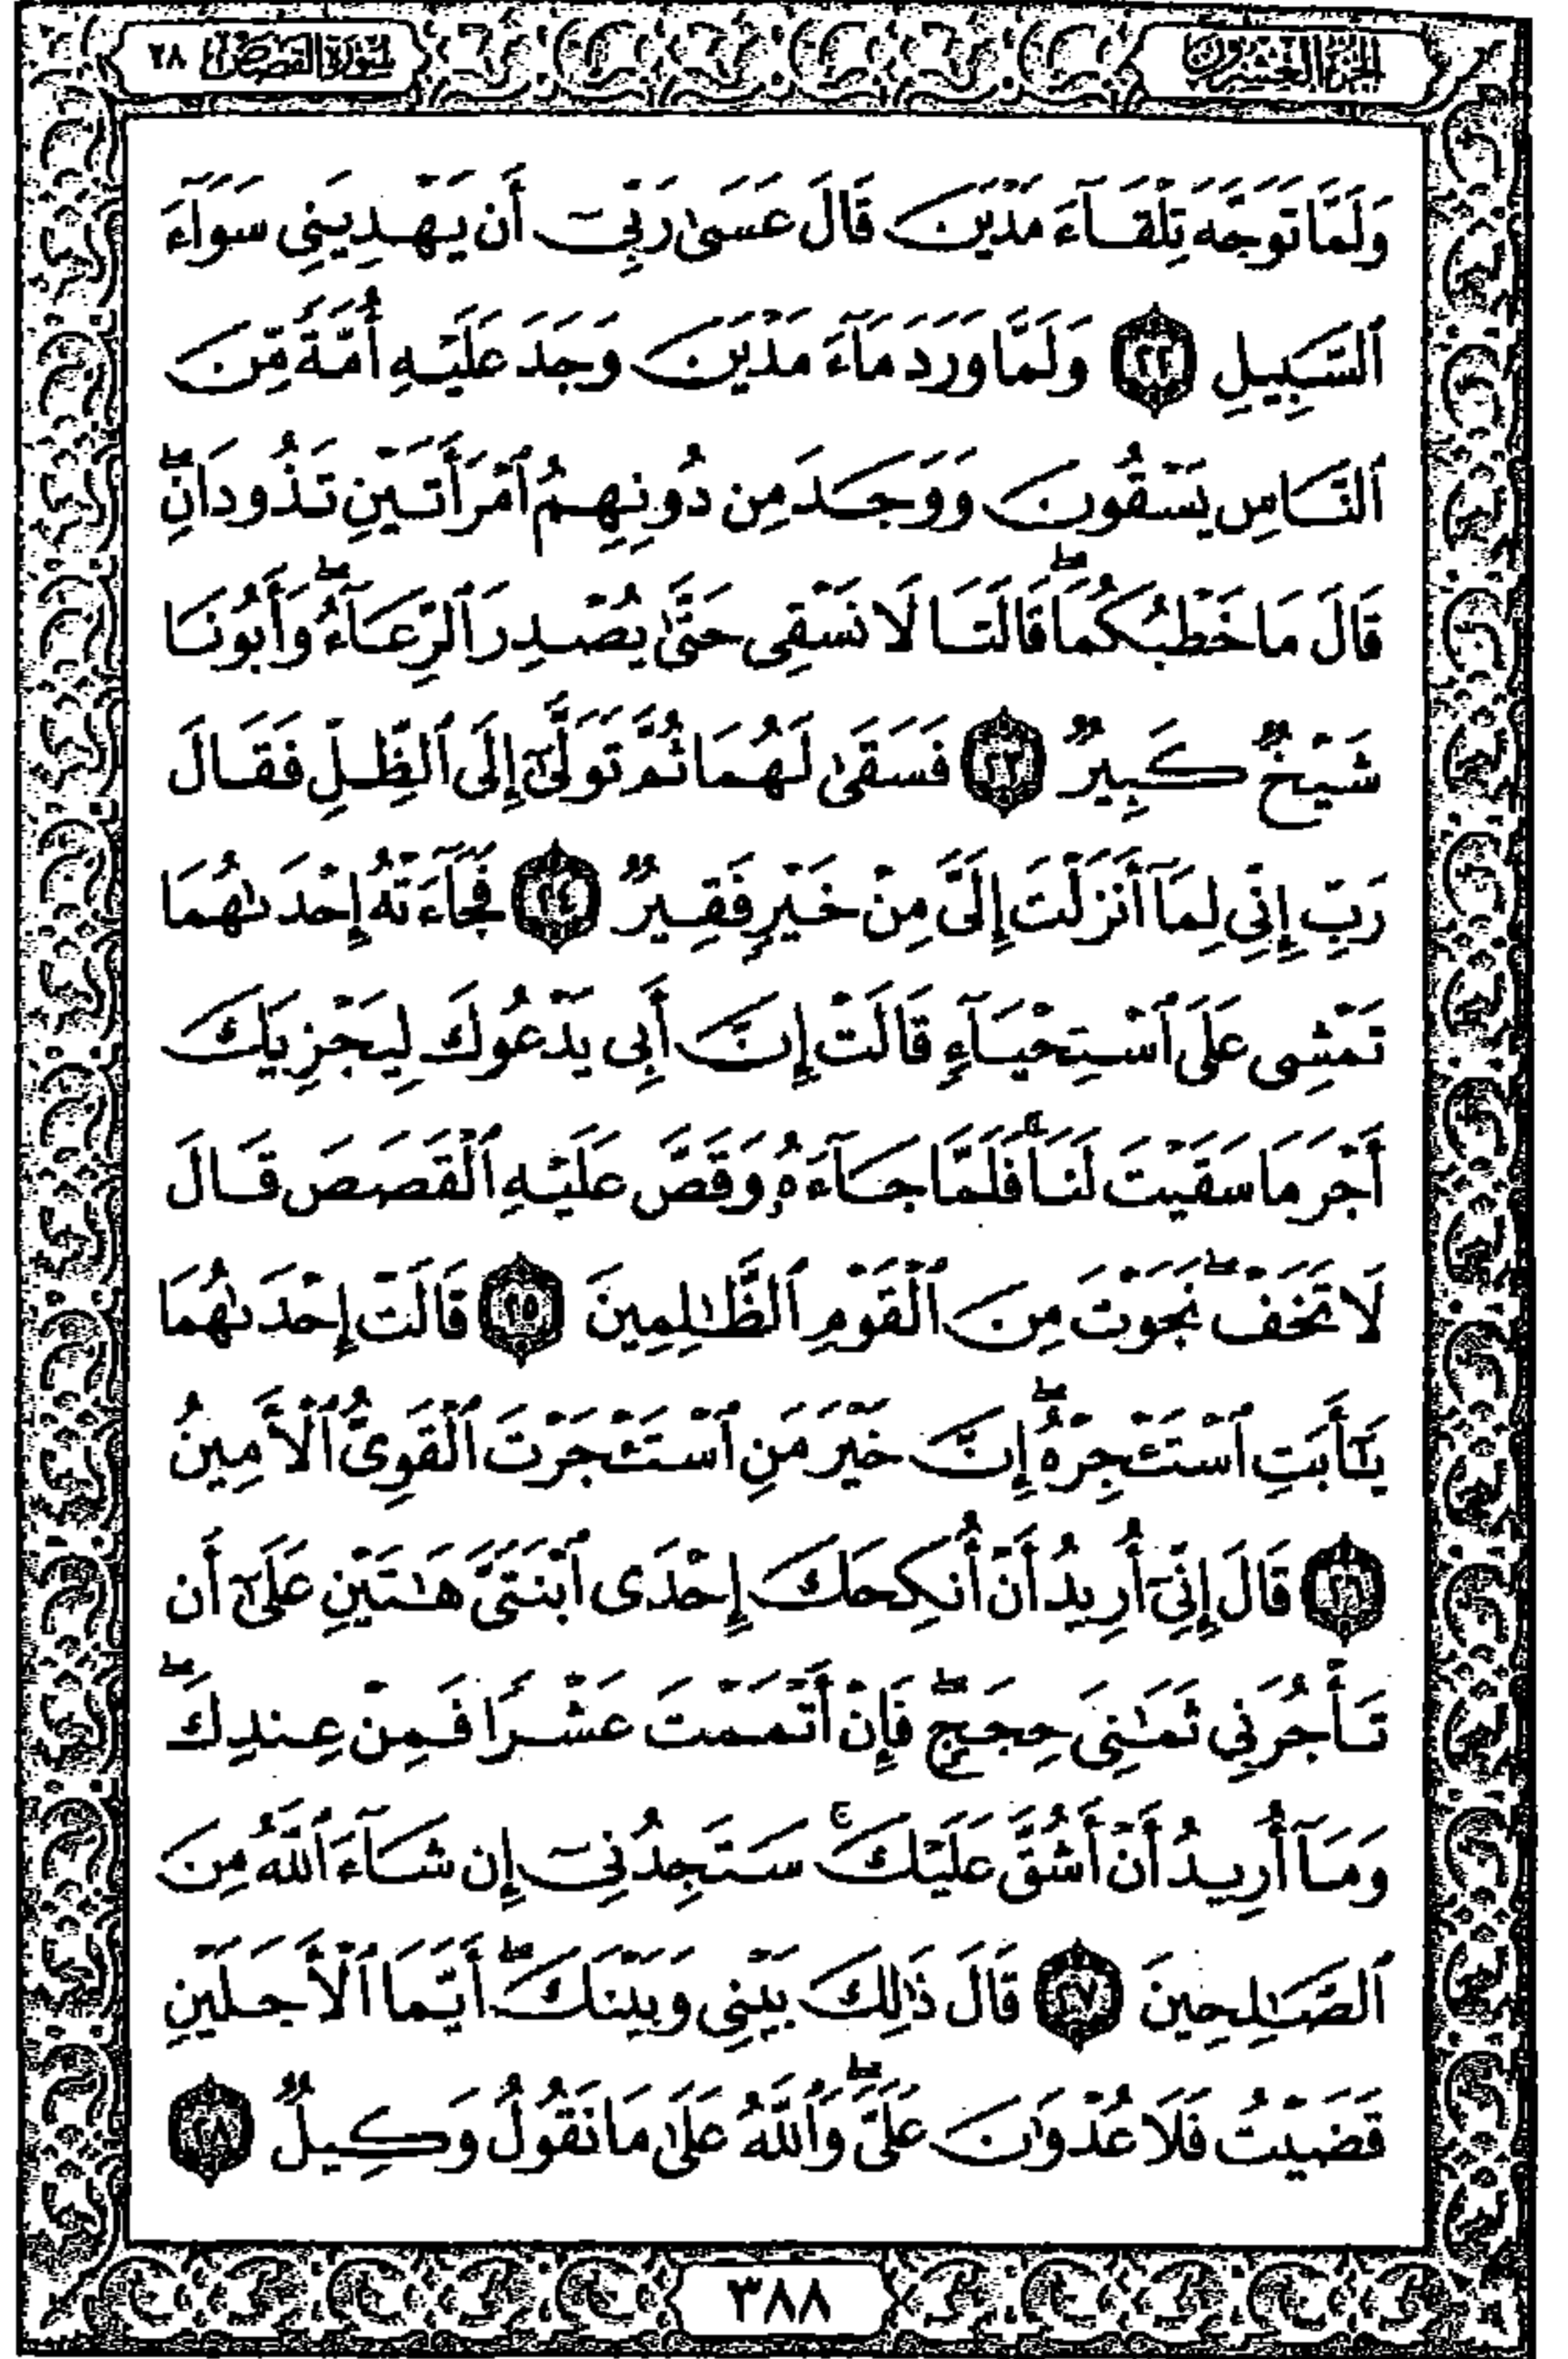 الجزء العشرون
سورة القصص ٢٨
وَلَمَّا تَوَجَّهَ تِلْقَآءَ مَدْيَنَ قَالَ عَسَىٰ رَبِّىٓ أَن يَهْدِيَنِى سَوَآءَ
ٱلسَّبِيلِ ٢٢ وَلَمَّا وَرَدَ مَآءَ مَدْيَنَ وَجَدَ عَلَيْهِ أُمَّةً مِّنَ
ٱلنَّاسِ يَسْقُونَ وَوَجَدَ مِن دُونِهِمُ ٱمْرَأَتَيْنِ تَذُودَانِۖ
قَالَ مَا خَطْبُكُمَاۖ قَالَتَا لَا نَسْقِى حَتَّىٰ يُصْدِرَ ٱلرِّعَآءُۖ وَأَبُونَا
شَيْخٌ كَبِيرٌ ٢٣ فَسَقَىٰ لَهُمَا ثُمَّ تَوَلَّىٰٓ إِلَى ٱلظِّلِّ فَقَالَ
رَبِّ إِنِّى لِمَآ أَنزَلْتَ إِلَىَّ مِنْ خَيْرٍ فَقِيرٌ ٢٤ فَجَآءَتْهُ إِحْدَىٰهُمَا
تَمْشِى عَلَى ٱسْتِحْيَآءٍ قَالَتْ إِنَّ أَبِى يَدْعُوكَ لِيَجْزِيَكَ
أَجْرَ مَا سَقَيْتَ لَنَاۚ فَلَمَّا جَآءَهُۥ وَقَصَّ عَلَيْهِ ٱلْقَصَصَ قَالَ
لَا تَخَفْۖ نَجَوْتَ مِنَ ٱلْقَوْمِ ٱلظَّٰلِمِينَ ٢٥ قَالَتْ إِحْدَىٰهُمَا
يَٰٓأَبَتِ ٱسْتَـْٔجِرْهُۖ إِنَّ خَيْرَ مَنِ ٱسْتَـْٔجَرْتَ ٱلْقَوِىُّ ٱلْأَمِينُ
٢٦ قَالَ إِنِّىٓ أُرِيدُ أَنْ أُنكِحَكَ إِحْدَى ٱبْنَتَىَّ هَٰتَيْنِ عَلَىٰٓ أَن
تَأْجُرَنِى ثَمَٰنِىَ حِجَجٍۖ فَإِنْ أَتْمَمْتَ عَشْرًا فَمِنْ عِندِكَۖ
وَمَآ أُرِيدُ أَنْ أَشُقَّ عَلَيْكَۚ سَتَجِدُنِىٓ إِن شَآءَ ٱللَّهُ مِنَ
ٱلصَّٰلِحِينَ ٢٧ قَالَ ذَٰلِكَ بَيْنِى وَبَيْنَكَۖ أَيَّمَا ٱلْأَجَلَيْنِ
قَضَيْتُ فَلَا عُدْوَٰنَ عَلَىَّۖ وَٱللَّهُ عَلَىٰ مَا نَقُولُ وَكِيلٌ ٢٨
٣٨٨